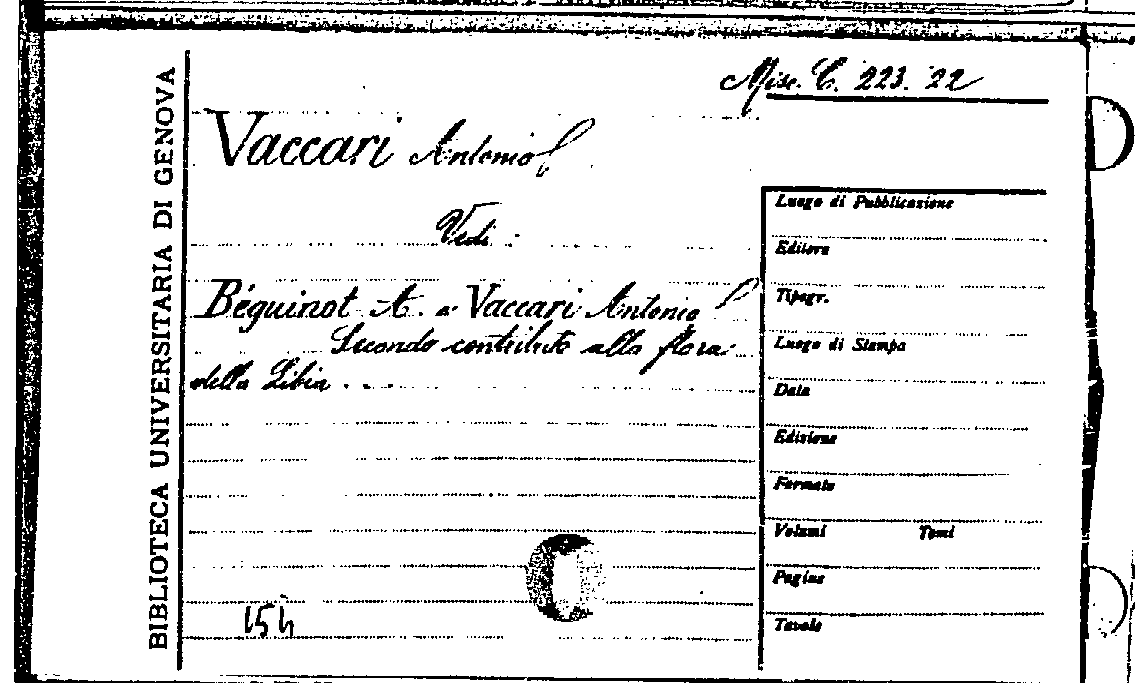 Misc. C. 223. 22
BIBLIOTECA UNIVERSITARIA DI GENOVA
Vaccari Antonio
Vedi :
Béguinot A. e Vaccari Antonio
Secondo contributo alla flora
della Libia . . .
Luogo di Pubblicazione
Editore
Tipogr.
Luogo di Stampa
Data
Edizione
Formato
Volumi Tomi
Pagine
Tavole